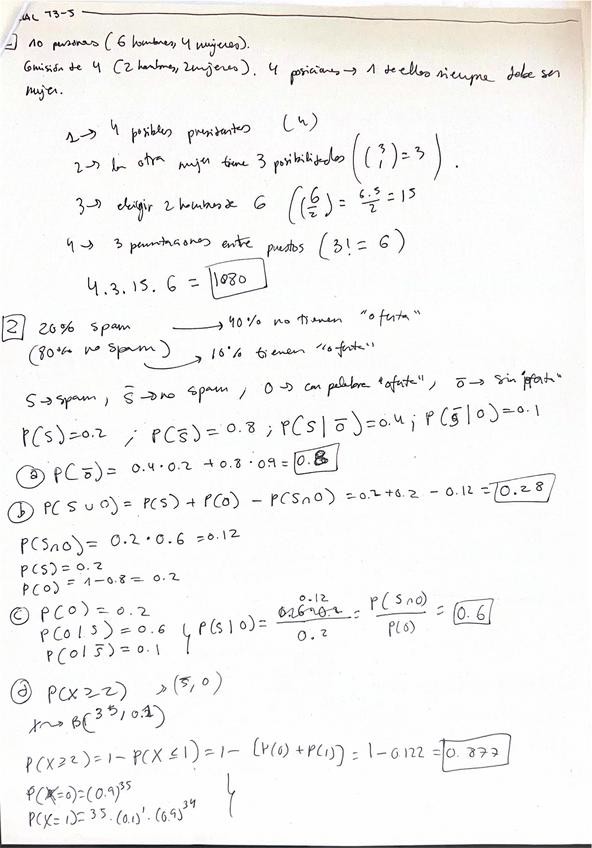 T3-J
10 personas (6 hombres, 4 mujeres).
Comisión de 4 (2 hombres, 2 mujeres). 4 posiciones → 1 de ellos siempre debe ser
mujer.
1→ 4 posibles presidentas (4)
2→ la otra mujer tiene 3 posibilidades ((3 1) = 3).
3→ elegir 2 hombres de 6 ((6 2) = 6.5/2 = 15
4→ 3 permutaciones entre puestos (3! = 6)
4.3.15.6 = 1080
2 20% spam → 40% no tienen "oferta"
(80% no spam) → 10% tienen "oferta"
S→ spam, S̄→ no spam, O→ con palabra "oferta", ō→ sin "oferta"
P(S)=0.2 ; P(S̄) = 0.8 ; P(S|ō)=0.4 ; P(S̄|O)=0.1
a P(ō) = 0.4·0.2 + 0.8·0.9 = 0.8
b P(S∪O) = P(S) + P(O) - P(S∩O) = 0.2+0.2 - 0.12 = 0.28
P(S∩O) = 0.2·0.6 = 0.12
P(S) = 0.2
P(O) = 1-0.8 = 0.2
c P(O) = 0.2
P(O|S) = 0.6
P(O|S̄) = 0.1
P(S|O) = 0.12/0.2 = P(S∩O)/P(O) = 0.6
d P(X≥2) → (S̄,O)
X→ B(35, 0.1)
P(X≥2) = 1 - P(X≤1) = 1 - [P(0) + P(1)] = 1-0.122 = 0.877
P(X=0) = (0.9)^35
P(X=1) = 35·(0.1)^1·(0.9)^34